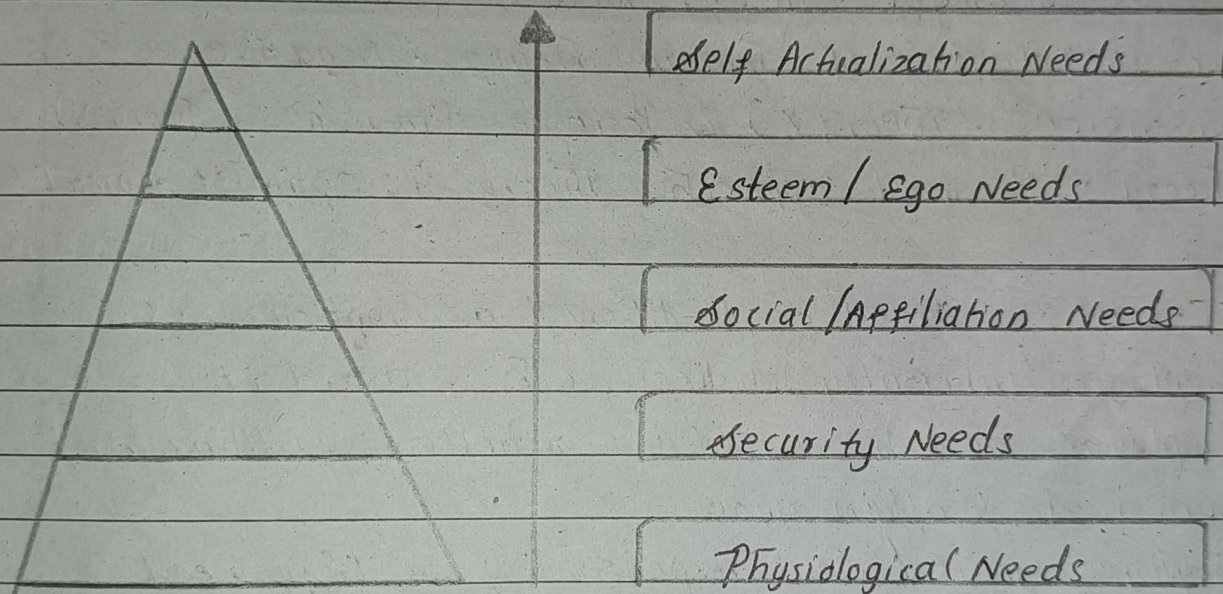 Self Actualization Needs
Esteem / Ego Needs
Social / Affiliation Needs
Security Needs
Physiological Needs